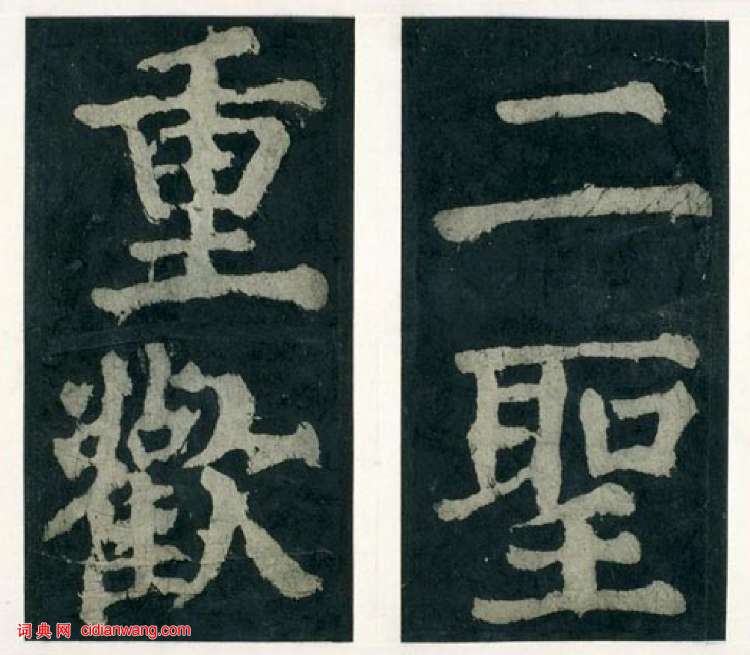 二聖
重歡
词典网 cidianwang.com